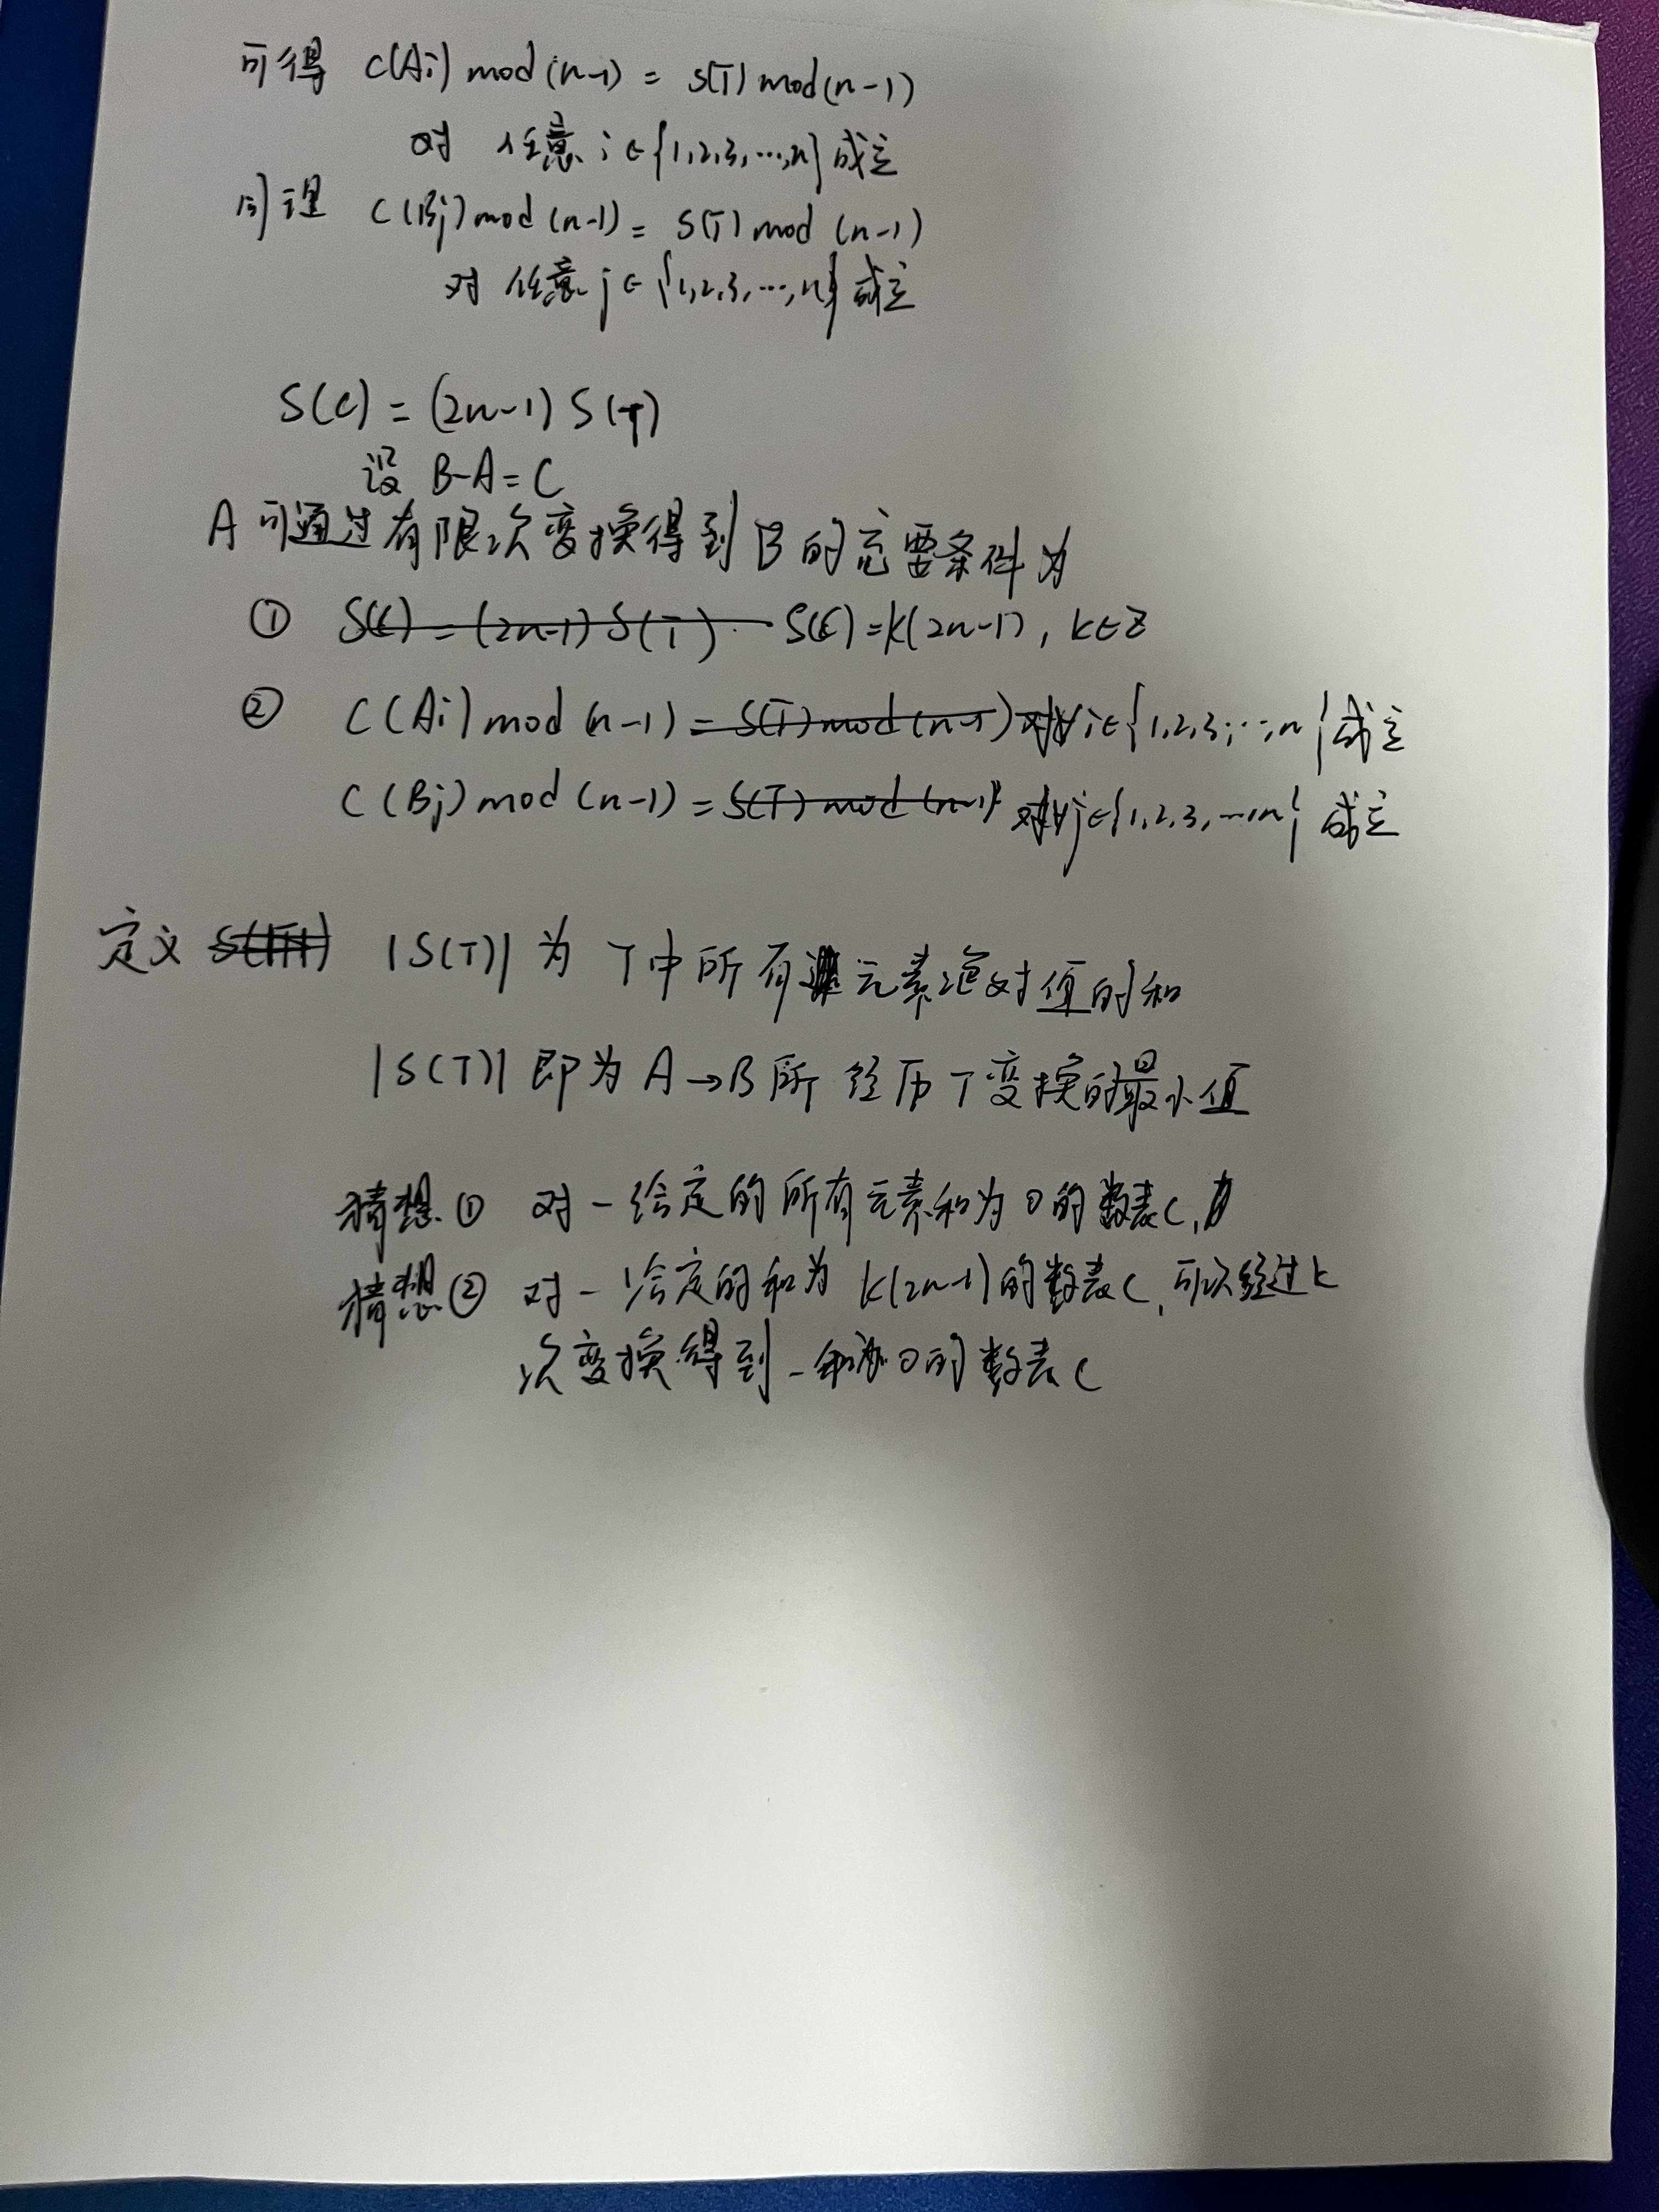 可得 C(Ai) mod (n-1) = S(T) mod (n-1)
对 任意 i∈{1,2,3,…,n} 成立
同理 C(Bj) mod (n-1) = S(T) mod (n-1)
对 任意 j∈{1,2,3,…,n} 成立
S(C) = (2n-1) S(T)
设 B-A=C
A可通过有限次变换得到B的充要条件为
① S(C)=(2n-1)S(T) S(C)=k(2n-1), k∈Z
② C(Ai) mod (n-1) = S(T) mod (n-1) 对∀i∈{1,2,3,…,n}成立
C(Bj) mod (n-1) = S(T) mod (n-1) 对∀j∈{1,2,3,…,n}成立
定义 |S(T)| 为 T中所有元素绝对值的和
|S(T)| 即为 A→B所经历T变换的最小值
猜想① 对一给定的所有元素和为0的数表C,
猜想② 对一给定的和为 k(2n-1)的数表C, 可以经过k
次变换得到一和为0的数表C